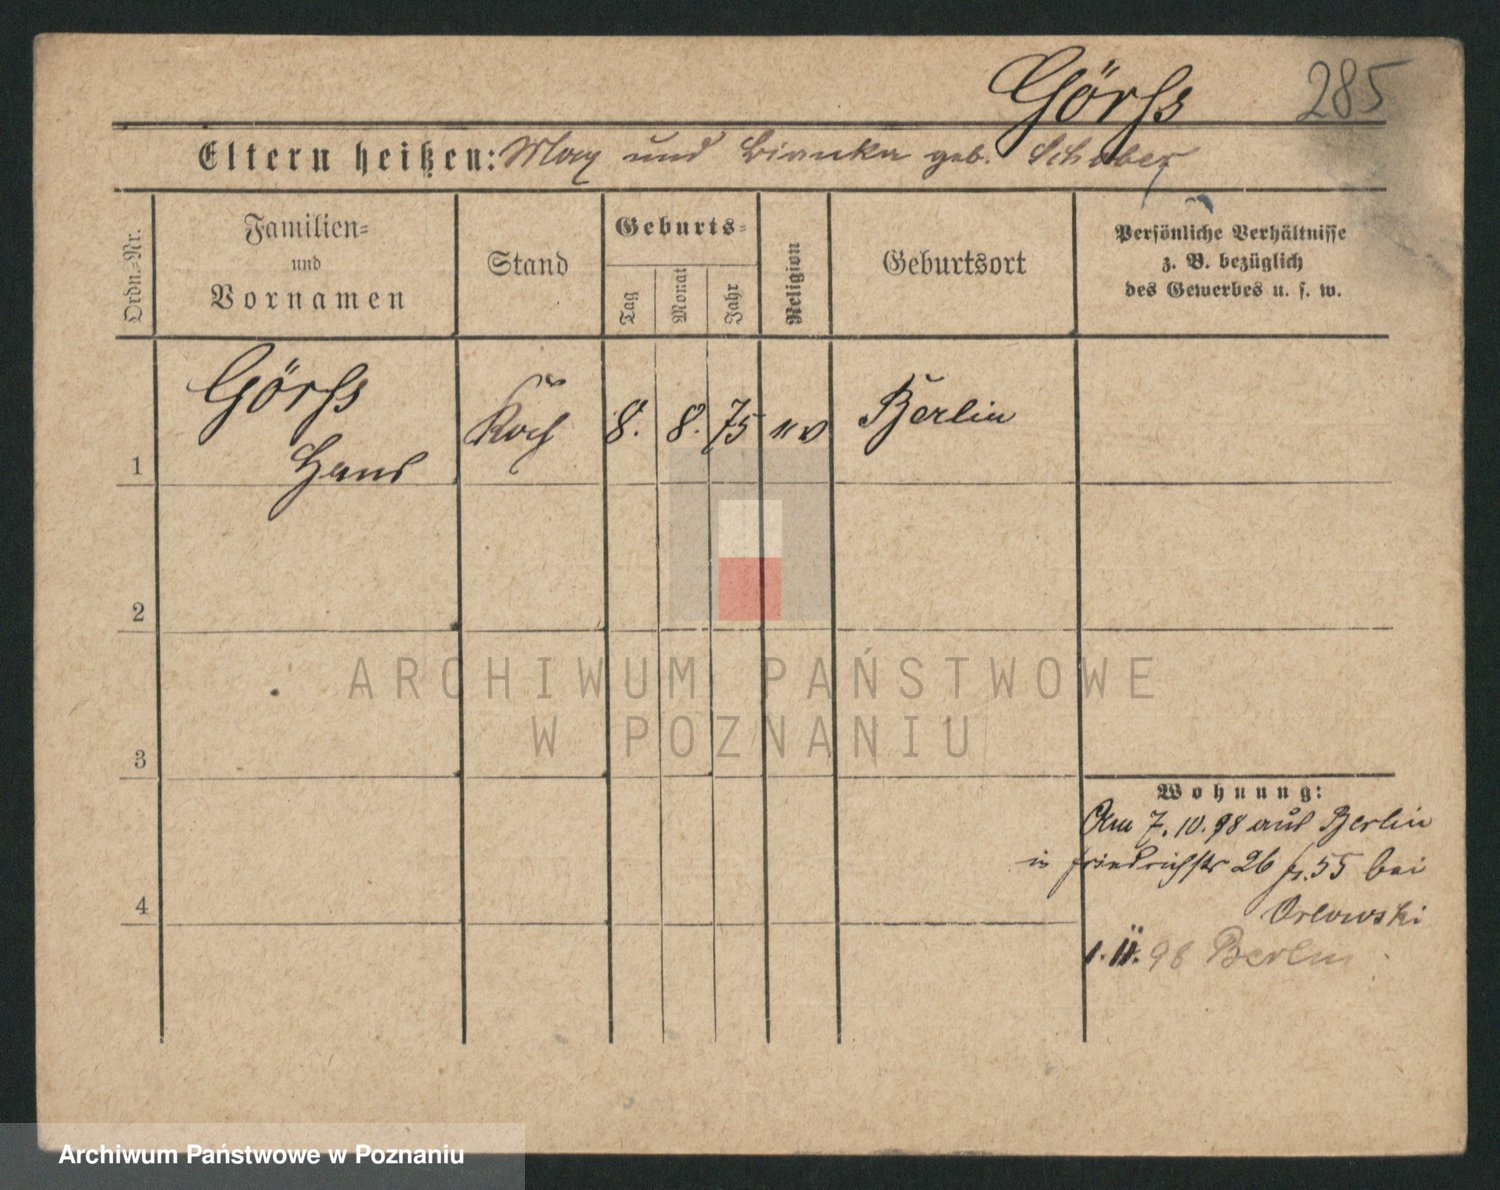 Görss
285
Eltern heißen: Max und Bianka geb. Schober
Ordn.-Nr.
Familien-
und
Vornamen
Stand
Geburts-
Tag
Monat
Jahr
Religion
Geburtsort
Persönliche Verhältnisse
z. B. bezüglich
des Gewerbes u. s. w.
1
Görss
Hans
Koch
8.
8.
75
ev
Berlin
2
3
4
ARCHIWUM PAŃSTWOWE
W POZNANIU
Wohnung:
Am 7. 10. 98 aus Berlin
in Friedrichstr 26 fr. 55 bei
Orlowski
1. 11. 98 Berlin
Archiwum Państwowe w Poznaniu